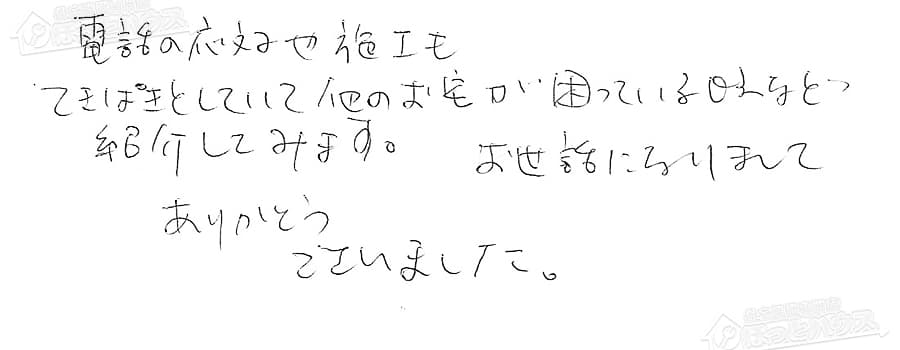 電話の応対や施工も
てきぱきとしていて他のお宅が困っている時など
紹介してみます。
お世話になりまして
ありがとう
ございました。